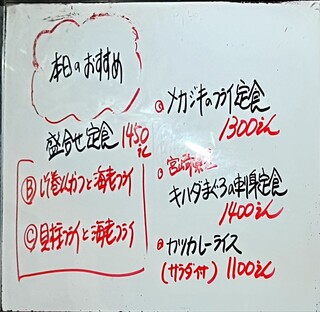 本日のおすすめ
盛合せ定食 1450えん
Ⓑ いか巻メンカツと海老フライ
Ⓒ 貝柱フライと海老フライ
メカジキのフライ定食
1300えん
宮崎県産
キハダまぐろの刺身定食
1400えん
カツカレーライス
(サラダ付) 1100えん